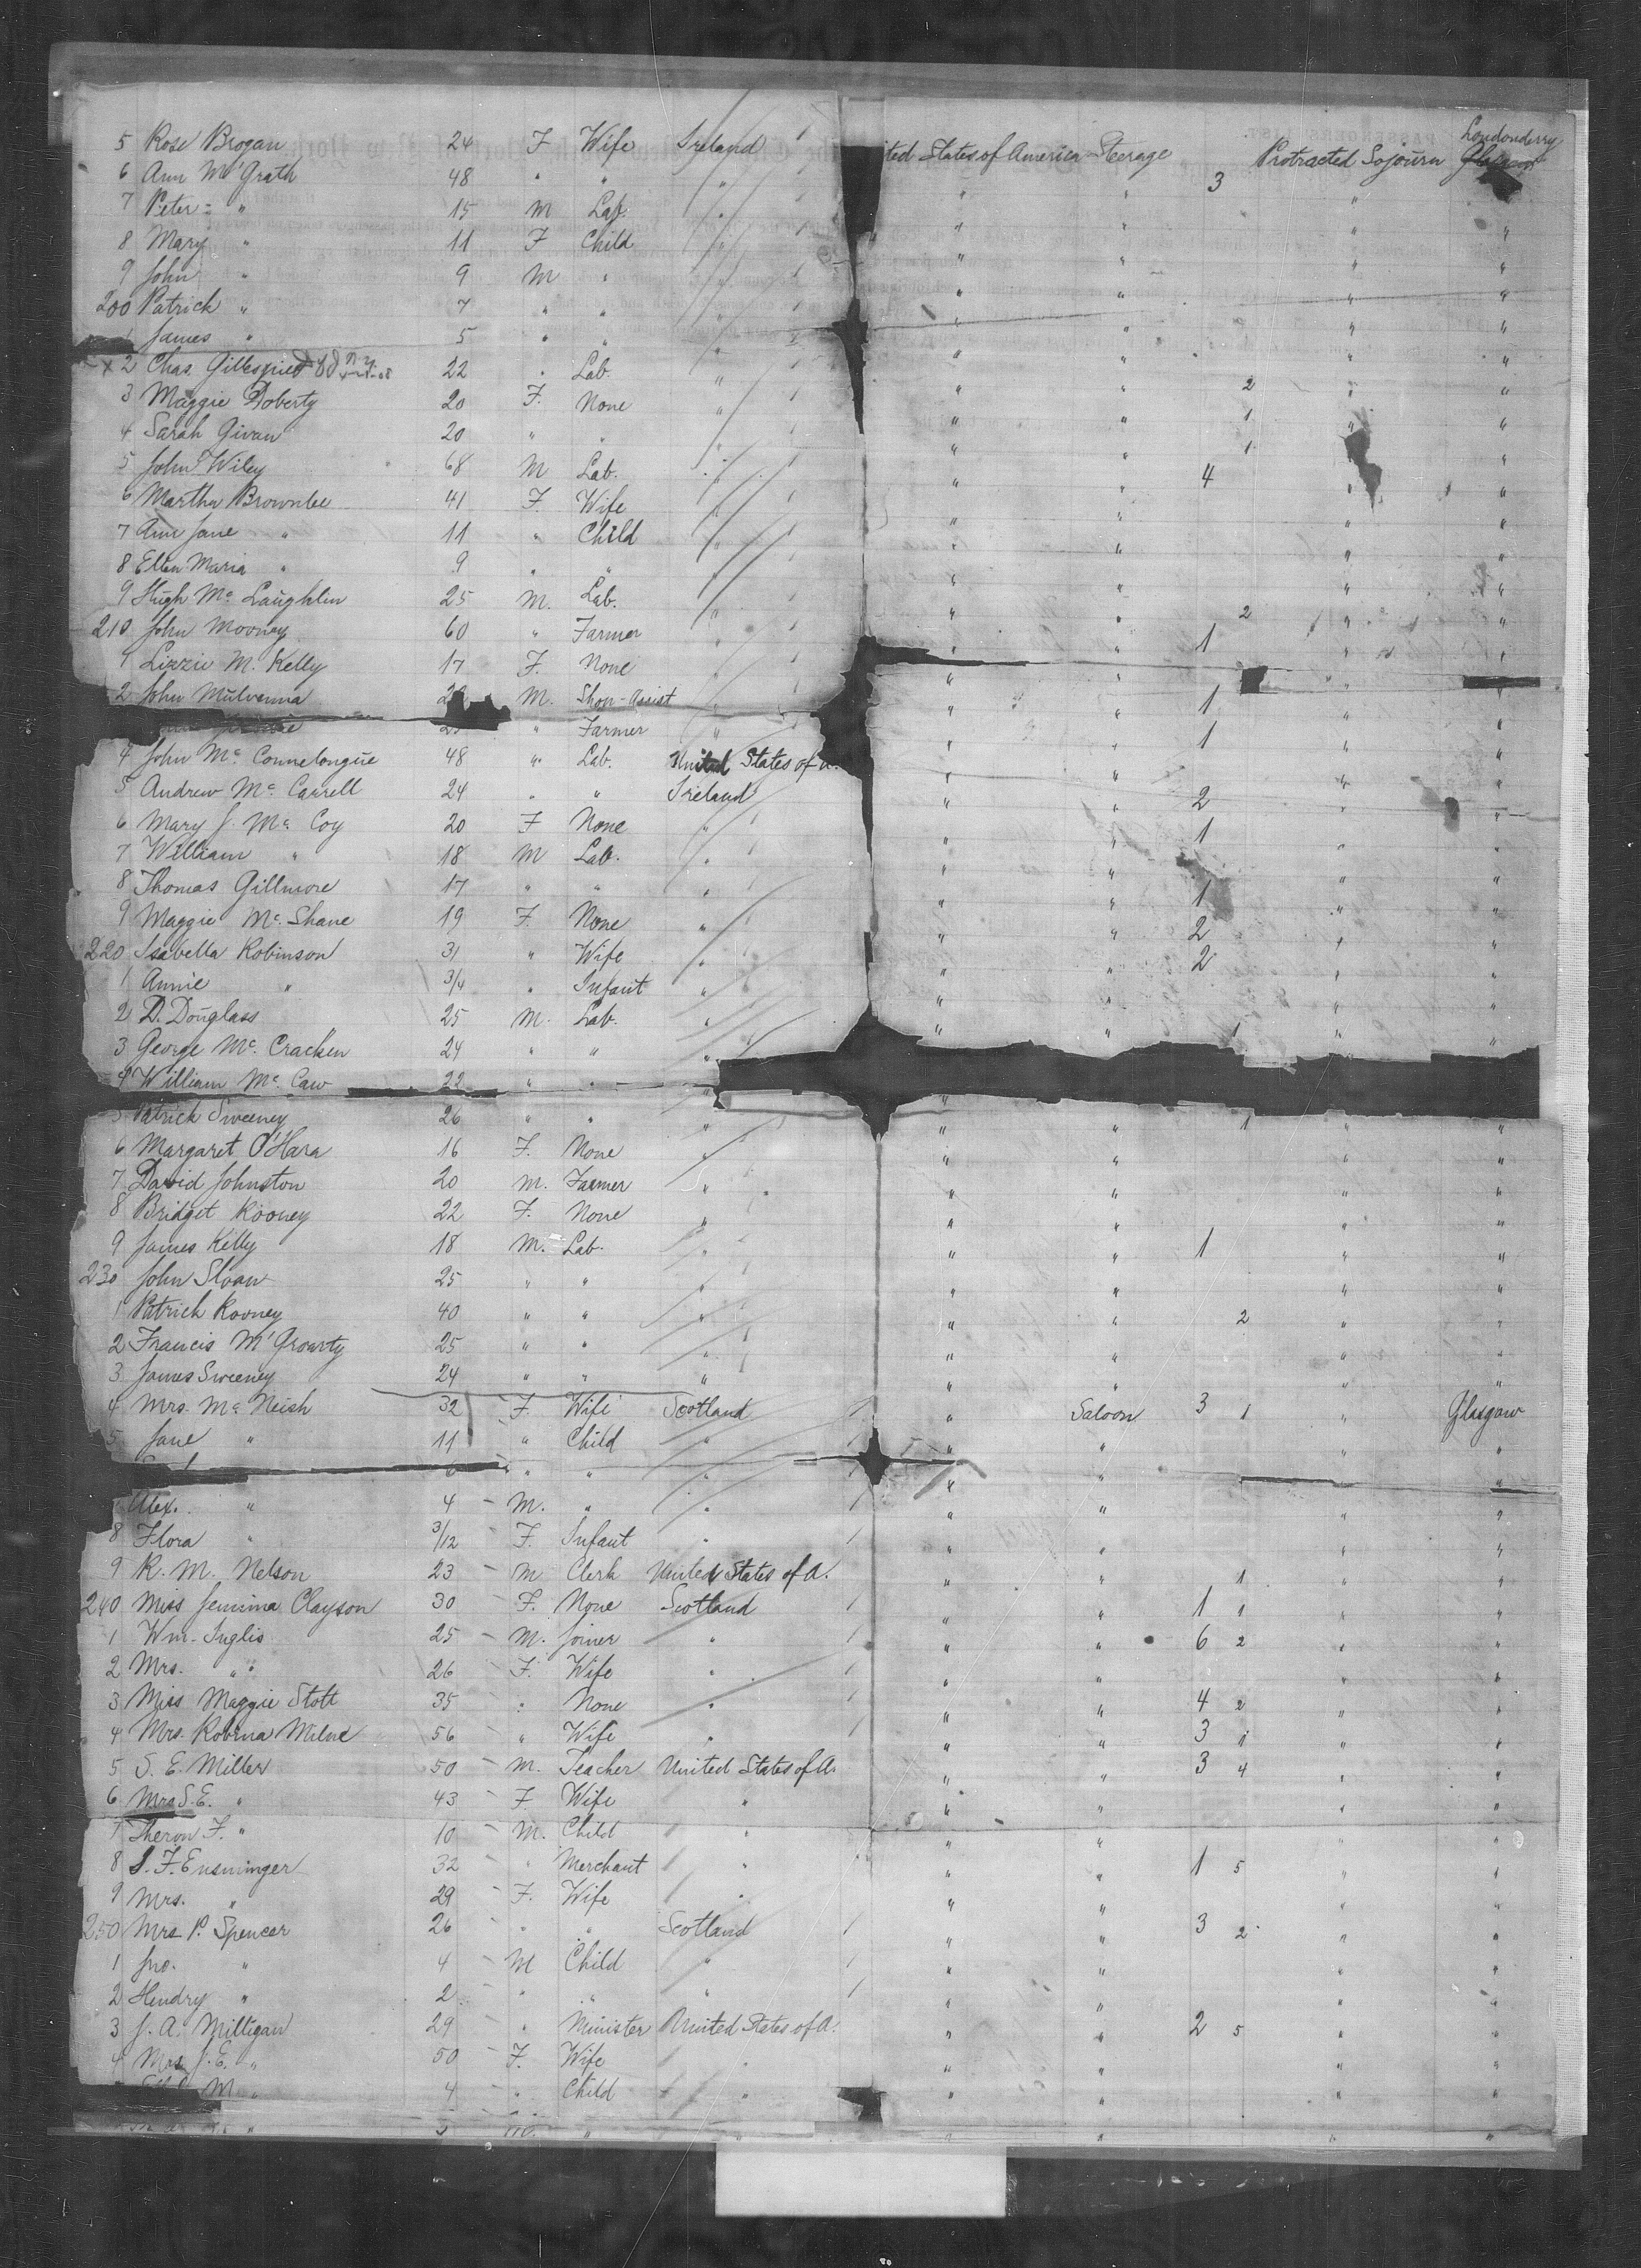 5 Rose Brogan 24 F Wife Ireland ited States of America Steerage Protracted Sojourn Londonderry
6 Ann McGrath 48 " " " " " 3 "
7 Peter " 15 M Lab. " " " " "
8 Mary " 11 F Child " " " " "
9 John " 9 M " " " " " "
200 Patrick " 7 " " " " " " "
James " 5 " " " " " " "
x 2 Chas. Gillespie 22 " Lab. " " " 2 " "
3 Maggie Doherty 20 F. None " " " 1 " "
4 Sarah Givan 20 " " " " " 1 " "
5 John Wiley 68 M Lab. " " " 4 " "
6 Martha Brownlee 41 F. Wife " " " " "
7 Ann Jane " 11 " Child " " " " "
8 Ellen Maria " 9 " " " " " " "
9 Hugh Mc Laughlin 25 M. Lab. " " " 2 " "
210 John Mooney 60 " Farmer " " " 1 " "
1 Lizzie M. Kelly 17 F. None " " " " "
2 John Mulvenna M. Shop-Assist " " " 1 " "
" Farmer " " " 1 " "
4 John Mc Connelongue 48 " Lab. United States of A. " " " "
5 Andrew Mc Carrell 24 " " Ireland " " 2 " "
6 Mary J. Mc Coy 20 F None " " " 1 " "
7 William " 18 M Lab. " " " " "
8 Thomas Gillmore 17 " " " " " 1 " "
9 Maggie Mc Shane 19 F. None " " " 2 " "
220 Isabella Robinson 31 " Wife " " " 2 " "
1 Annie " 3/4 " Infant " " " " "
2 D. Douglass 25 M. Lab. " " " 1 " "
3 George Mc Cracken 24 " " "
4 William Mc Caw 22 " " "
5 Patrick Sweeney 26 " " " " " 1 " "
6 Margaret O'Hara 16 F. None " " " " "
7 David Johnston 20 M. Farmer " " " " "
8 Bridget Rooney 22 F. None " " " " "
9 James Kelly 18 M. Lab. " " " 1 " "
230 John Sloan 25 " " " " " " "
1 Patrick Rooney 40 " " " " " 2 " "
2 Francis M'Groarty 25 " " " " " " "
3 James Sweeney 24 " " " " " " "
4 Mrs. Mc Neish 32 F. Wife Scotland " Saloon 3 1 " Glasgow
5 Jane " 11 " Child " " " " "
" " " " " "
Alex. " 4 M. " " " " " "
8 Flora " 3/12 F. Infant " " " " "
9 R. M. Nelson 23 M Clerk United States of A. " " 1 " "
240 Miss Jemima Clayson 30 F. None Scotland " " 1 1 " "
1 Wm. Inglis 25 M. Joiner " " " 6 2 " "
2 Mrs. " 26 F. Wife " " " " "
3 Miss Maggie Stott 35 " None " " " 4 2 " "
4 Mrs. Robina Milne 56 " Wife " " " 3 1 " "
5 S. E. Miller 50 M. Teacher United States of A. " " 3 4 " "
6 Mrs S. E. " 43 F. Wife " " " " "
7 Theron F. " 10 M. Child " " " " "
8 S. F. Ensminger 32 " Merchant " " " 1 5 " "
9 Mrs. " 29 F. Wife " " " " "
250 Mrs P. Spencer 26 " " Scotland " " 3 2 " "
1 Jno. " 4 M Child " " " " "
2 Hendry " 2 " " " " " " "
3 J. A. Milligan 29 " Minister United States of A. " " 2 5 " "
4 Mrs J. E. " 50 F. Wife " " " " "
M " 4 " Child " " " " "
" " " " " "